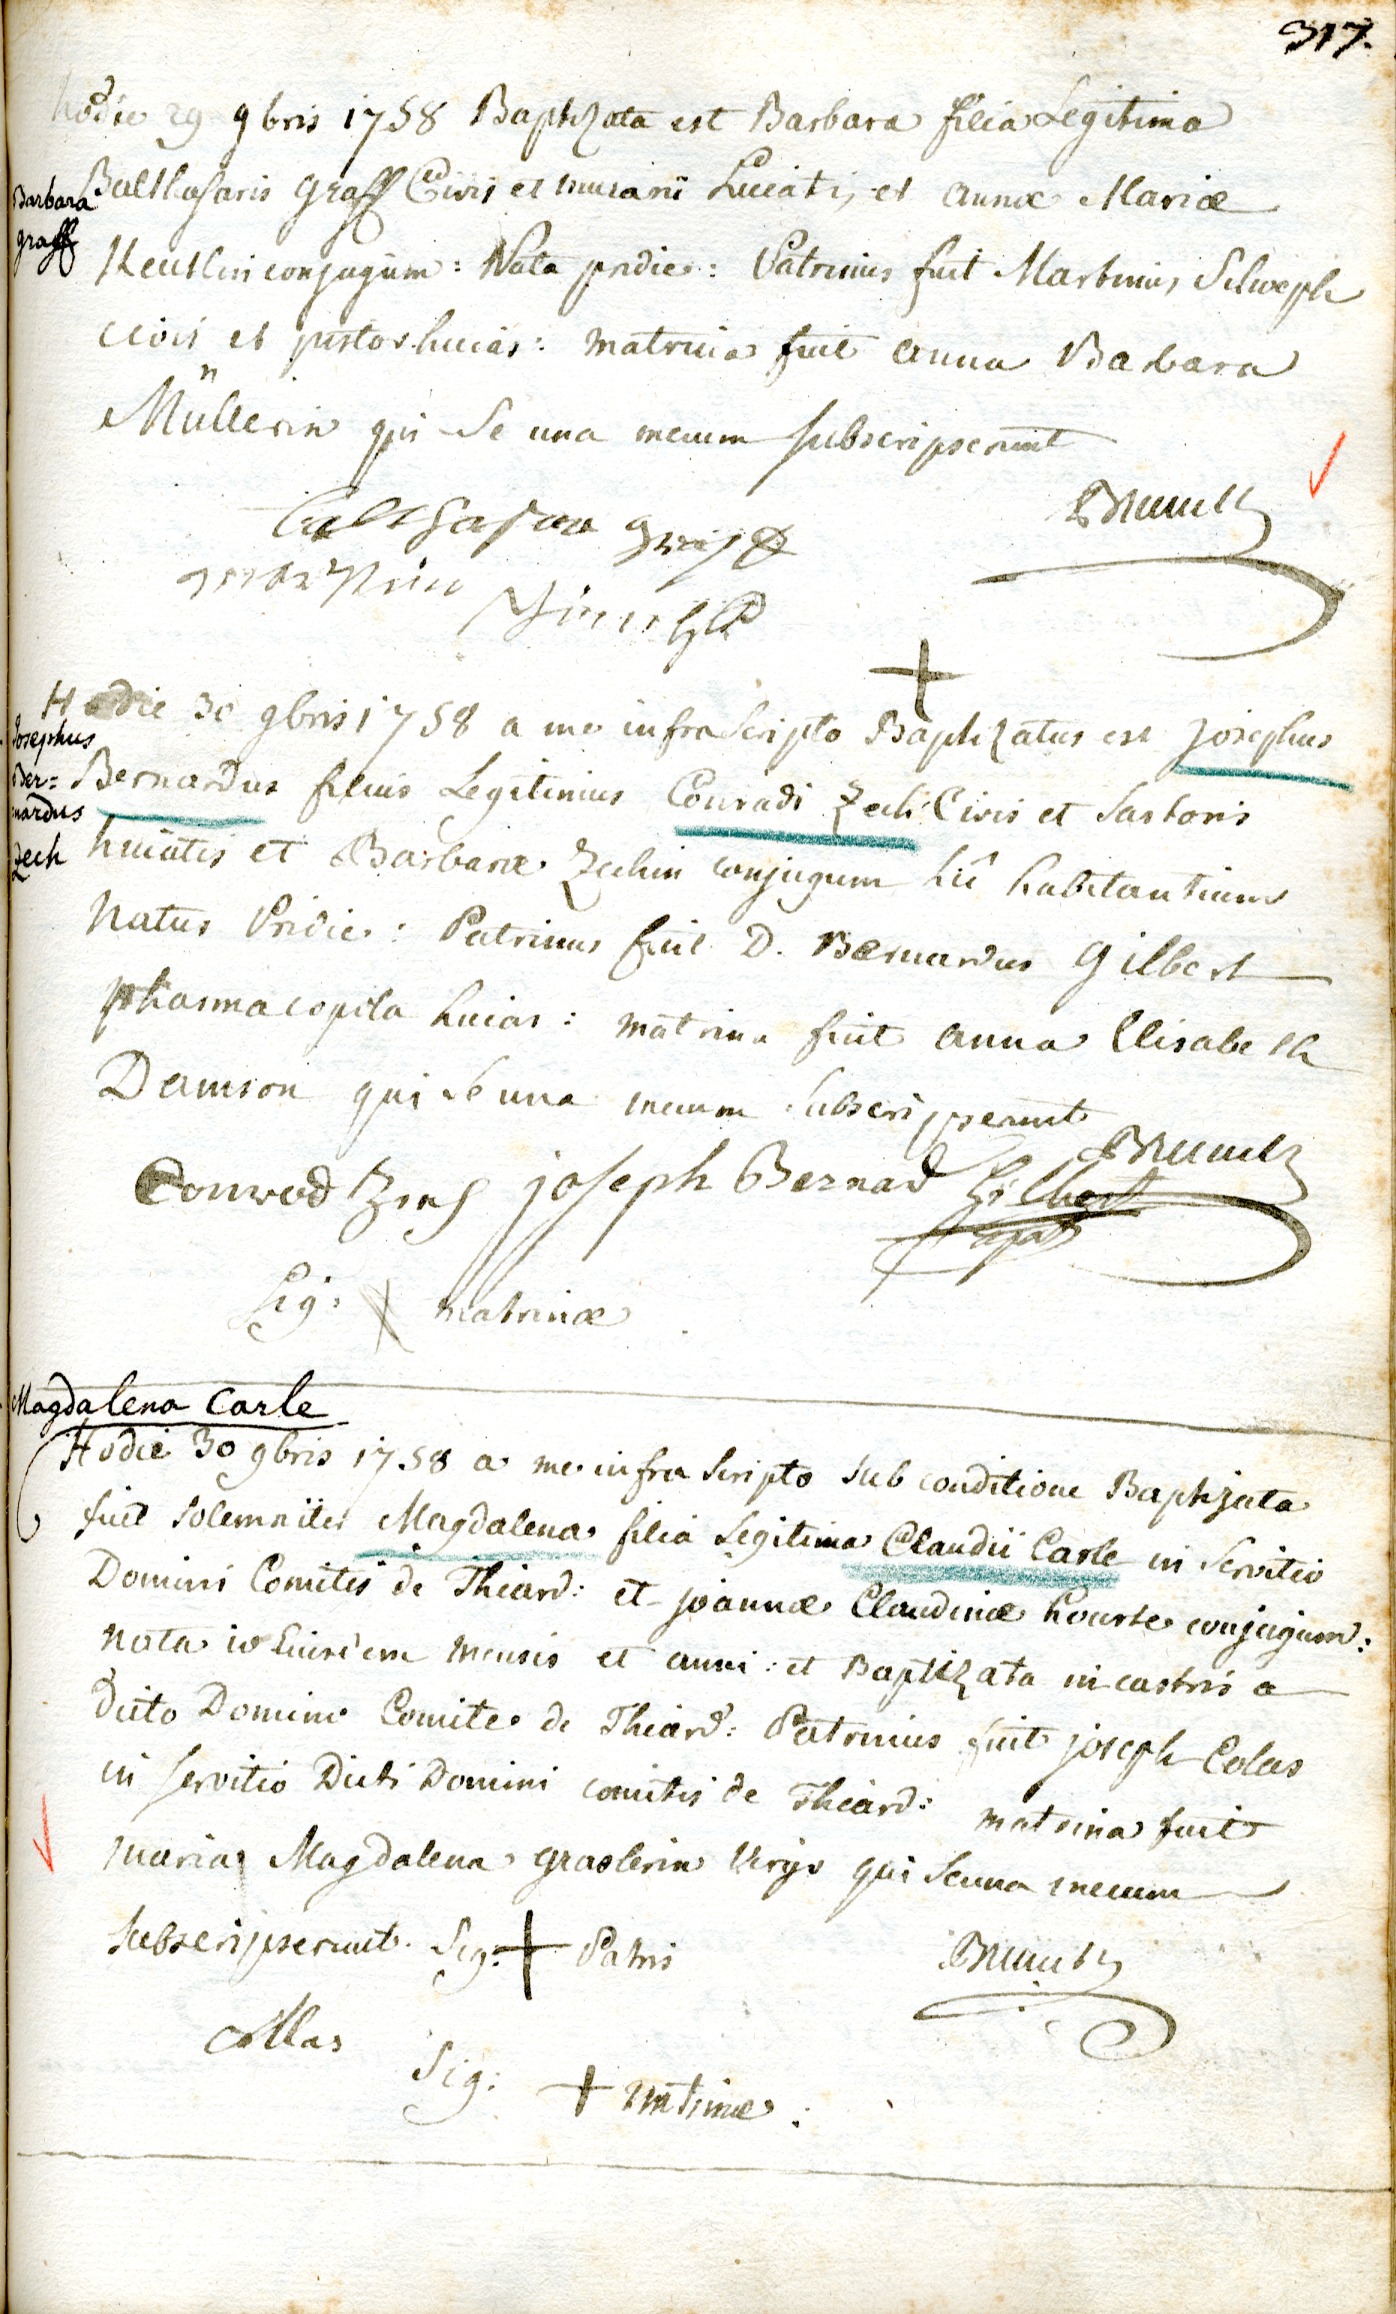 317.
hodie 29 9bris 1758 Baptizata est Barbara filia Legitima
Barbara
graff
Balthasaris Graff Civis et murarii huiatis, et annæ Mariæ
Keuslin conjugum: Nata pridie: Patrinus fuit Martinus Schoepf
civis et pistor huias: matrina fuit anna Babara
Müllerin qui se una mecum subscripserunt
Balthasar graff
Hodie 30 9bris 1758 a me infra scripto Baptizatus est Josephus
Josephus
Ber=
nardus
Zech
Bernardus filius Legitimus Conradi Zech Civis et sartoris
huiatis et Barbaræ Zechin conjugum hîc habitantium
Natus Pridie: Patrinus fuit D. Bernardus Gilbert
pharmacopola huias: matrina fuit anna Elisabeth
Damson qui se una mecum subscripserunt
Conrod Zech joseph Bernad Gilbert
Sig: X matrinæ
Magdalena Carle
Hodie 30 9bris 1758 a me infra scripto sub conditione Baptizata
fuit solemniter Magdalena filia legitima Claudii Carle in servitio
Domini Comitis de Thiard: et joannæ Claudinæ hourte conjugum:
nata 10 Eiusdem mensis et anni: et Baptizata in castris a
dicto Domino Comite de Thiard: Patrinus fuit joseph Colas
in servitio Dicti Domini comitis de Thiard: matrina fuit
maria Magdalena graslerin Virgo qui se una mecum
subscripserunt. Sig: + Patris
Collas
Sig: + matrinæ: